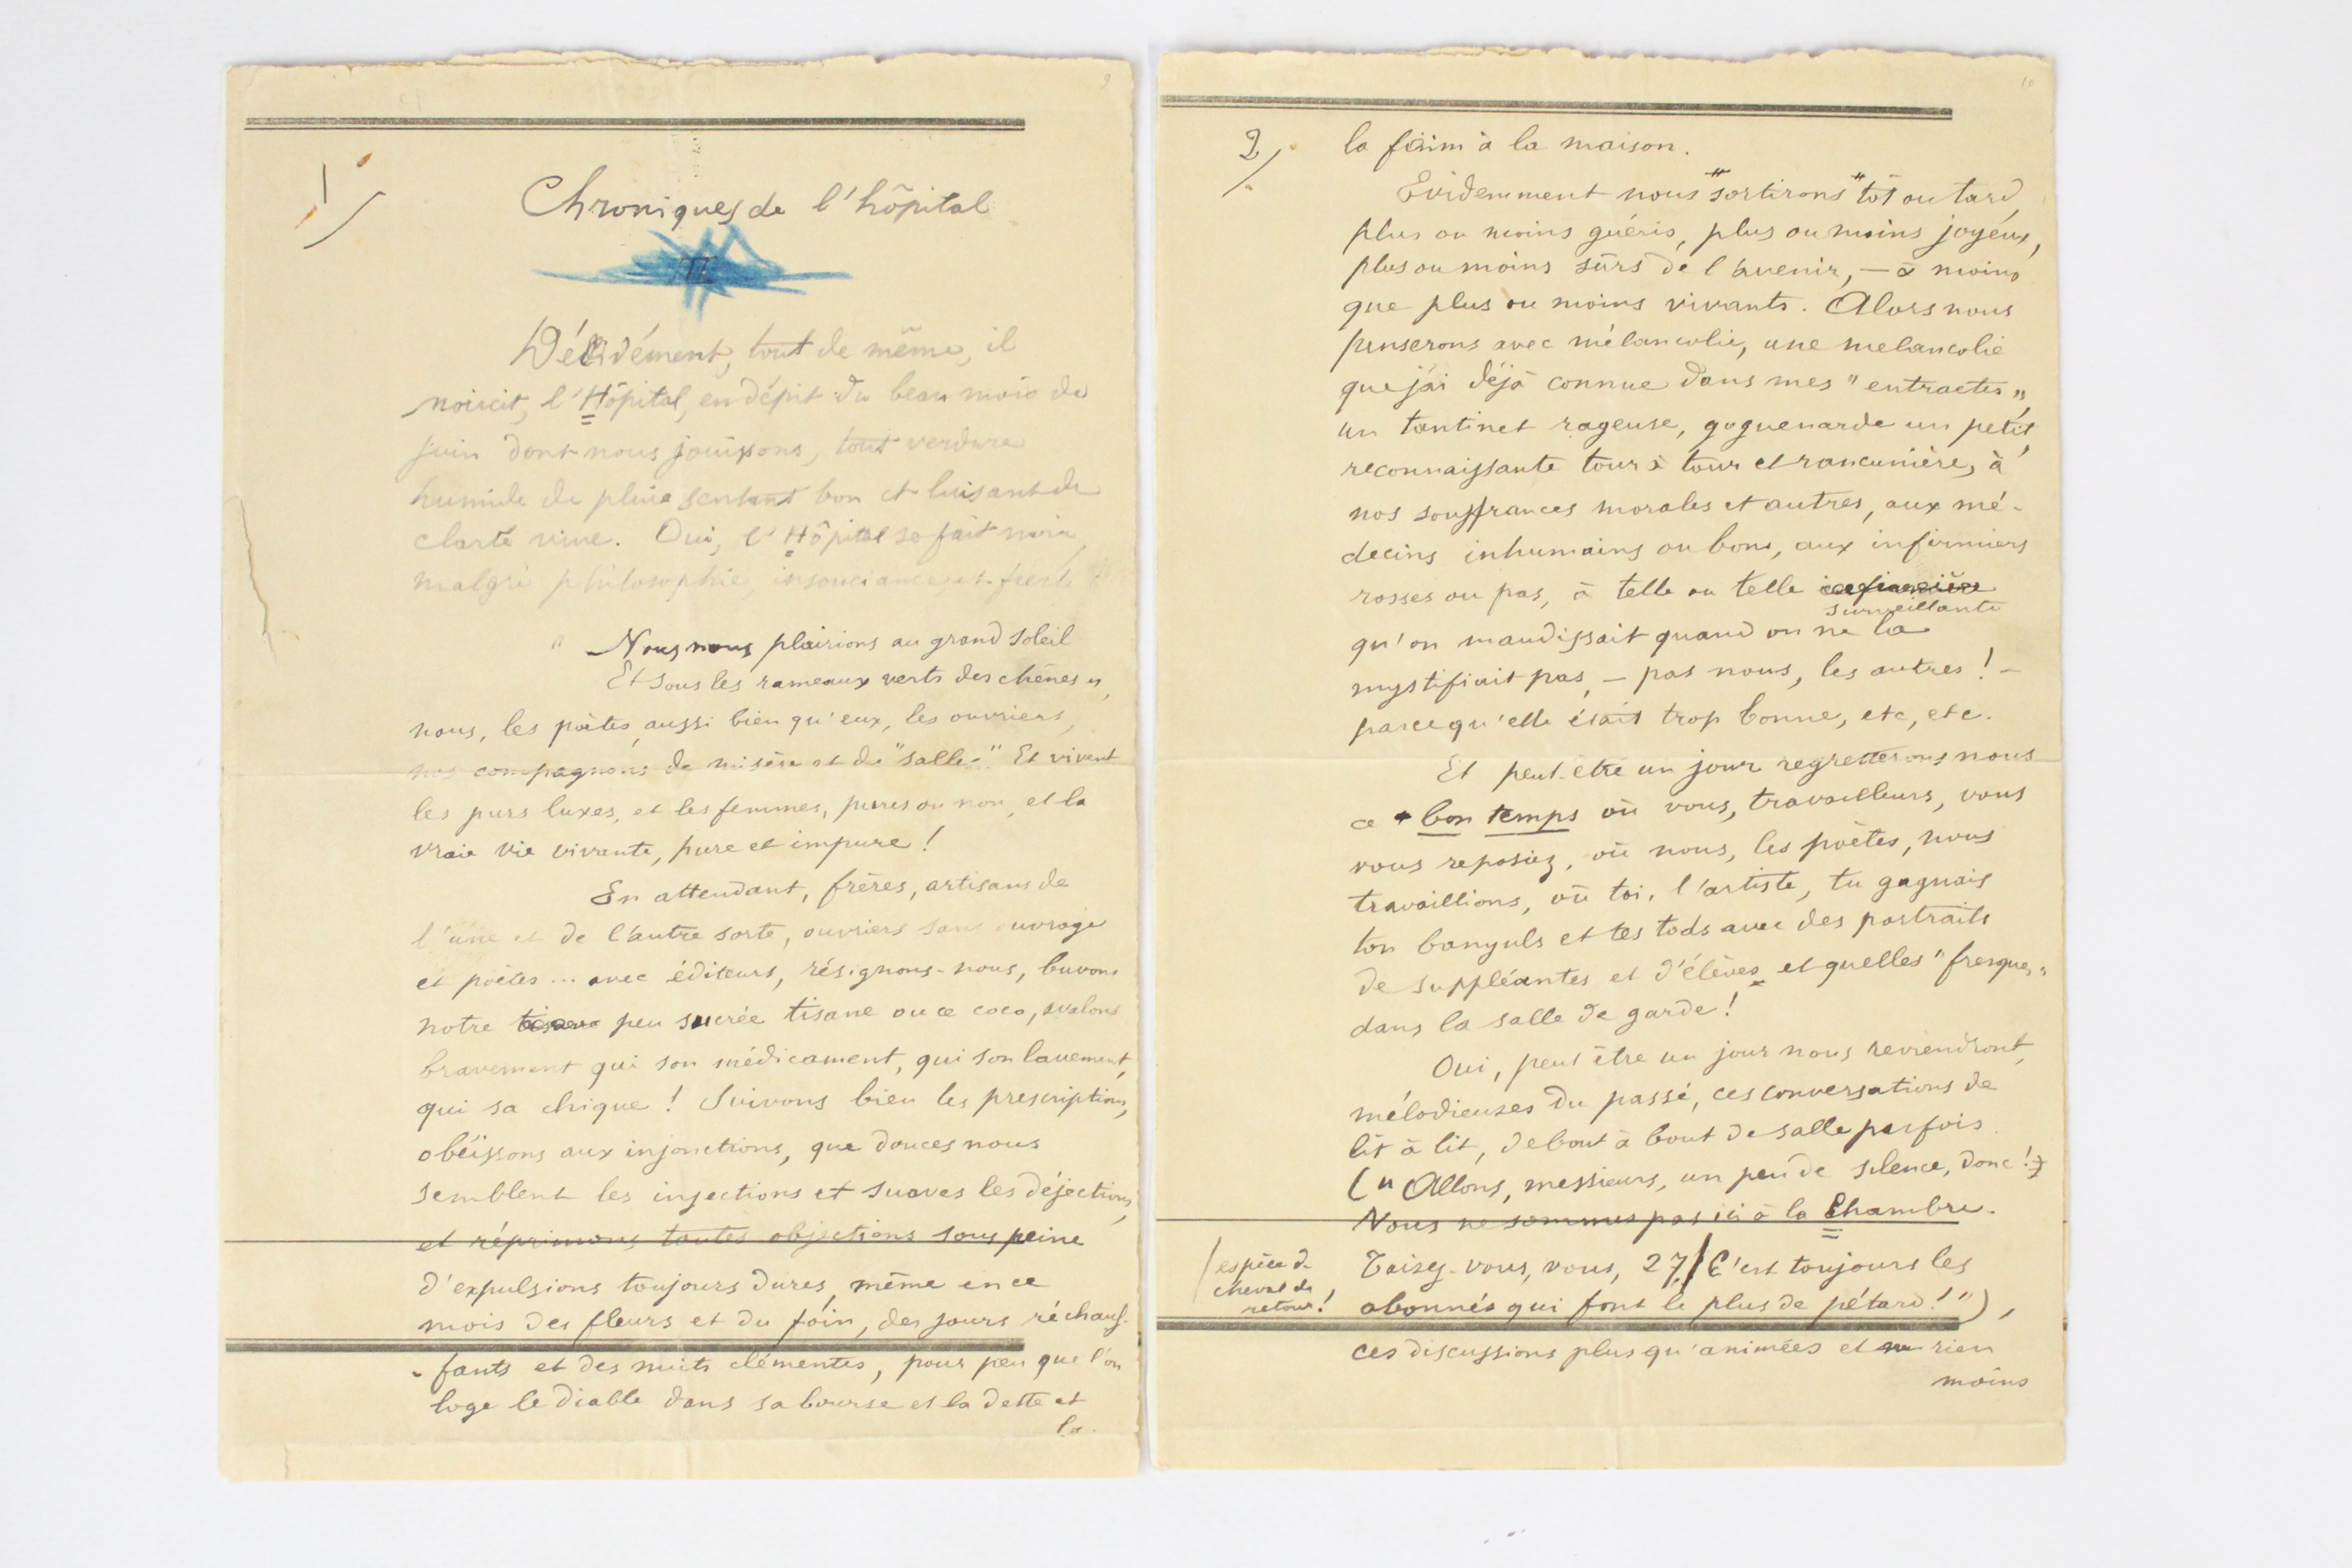 9
1)
Chroniques de l'hôpital
II
Décidément, tout de même, il
noircit, l'Hôpital, en dépit du beau mois de
juin dont nous jouissons, tout verdure
humide de pluie sentant bon et luisant de
clarté vive. Oui, l'Hôpital se fait noir,
malgré philosophie, insouciance et fierté.
" Nous nous plairions au grand soleil
Et sous les rameaux verts des chênes ",
nous, les poètes, aussi bien qu'eux, les ouvriers,
nos compagnons de misère et de "salle". Et vivent
les purs luxes, et les femmes, pures ou non, et la
vraie vie vivante, pure et impure !
En attendant, frères, artisans de
l'une et de l'autre sorte, ouvriers sans ouvrage
et poètes ... avec éditeurs, résignons-nous, buvons
notre peu sucrée tisane ou ce coco, avalons
bravement qui son médicament, qui son lavement,
qui sa chique ! Suivons bien les prescriptions,
obéissons aux injonctions, que douces nous
semblent les injections et suaves les déjections,
et réprimons toutes objections sous peine
d'expulsions toujours dures, même en ce
mois des fleurs et du foin, des jours réchauf-
-fants et des nuits clémentes, pour peu que l'on
loge le diable dans sa bourse et la dette et
la.
10
2/
la faim à la maison.
Evidemment nous "sortirons" tôt ou tard,
plus ou moins guéris, plus ou moins joyeux,
plus ou moins sûrs de l'avenir, — à moins
que plus ou moins vivants. Alors nous
penserons avec mélancolie, une melancolie
que j'ai déjà connue dans mes "entractes",
un tantinet rageuse, goguenarde un petit,
reconnaissante tour à tour et rancunière, à
nos souffrances morales et autres, aux mé-
decins inhumains ou bons, aux infirmiers
rosses ou pas, à telle ou telle infirmière
surveillante
qu'on maudissait quand on ne la
mystifiait pas, — pas nous, les autres ! —
parce qu'elle était trop bonne, etc, etc.
Et peut-être un jour regretterons nous
ce bon temps où vous, travailleurs, vous
vous reposiez, où nous, les poètes, nous
travaillions, où toi, l'artiste, tu gagnais
ton banyuls et tes tods avec des portraits
de suppléantes et d'élèves et quelles "fresques"
dans la salle de garde !
Oui, peut être un jour nous reviendront,
mélodieuses du passé, ces conversations de
lit à lit, de bout à bout de salle parfois
(" Allons, messieurs, un peu de silence, donc !
Nous ne sommes pas ici à la Chambre.
Taisez-vous, vous, 27, / C'est toujours les
/ espèce de
cheval de
retour !
abonnés qui font le plus de pétard ! "),
ces discussions plus qu'animées et rien
moins